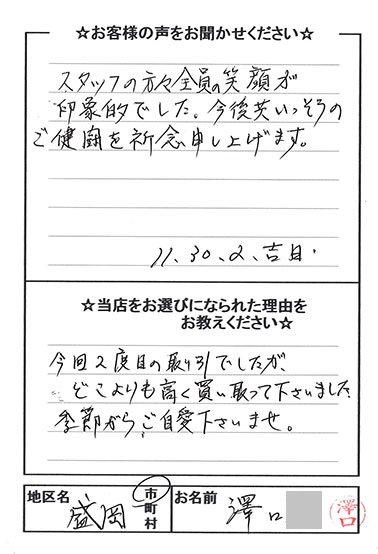 ☆お客様の声をお聞かせください☆
スタッフの方々全員の笑顔が
印象的でした。今後共いっそうの
ご健闘を祈念申し上げます。
11.30.2、吉日.
☆当店をお選びになられた理由を
お教えください☆
今回2度目の取り引でしたが、
どこよりも高く買い取って下さいました
季節がらご自愛下さいませ。
地区名 盛岡 市町村 お名前 澤口 澤口